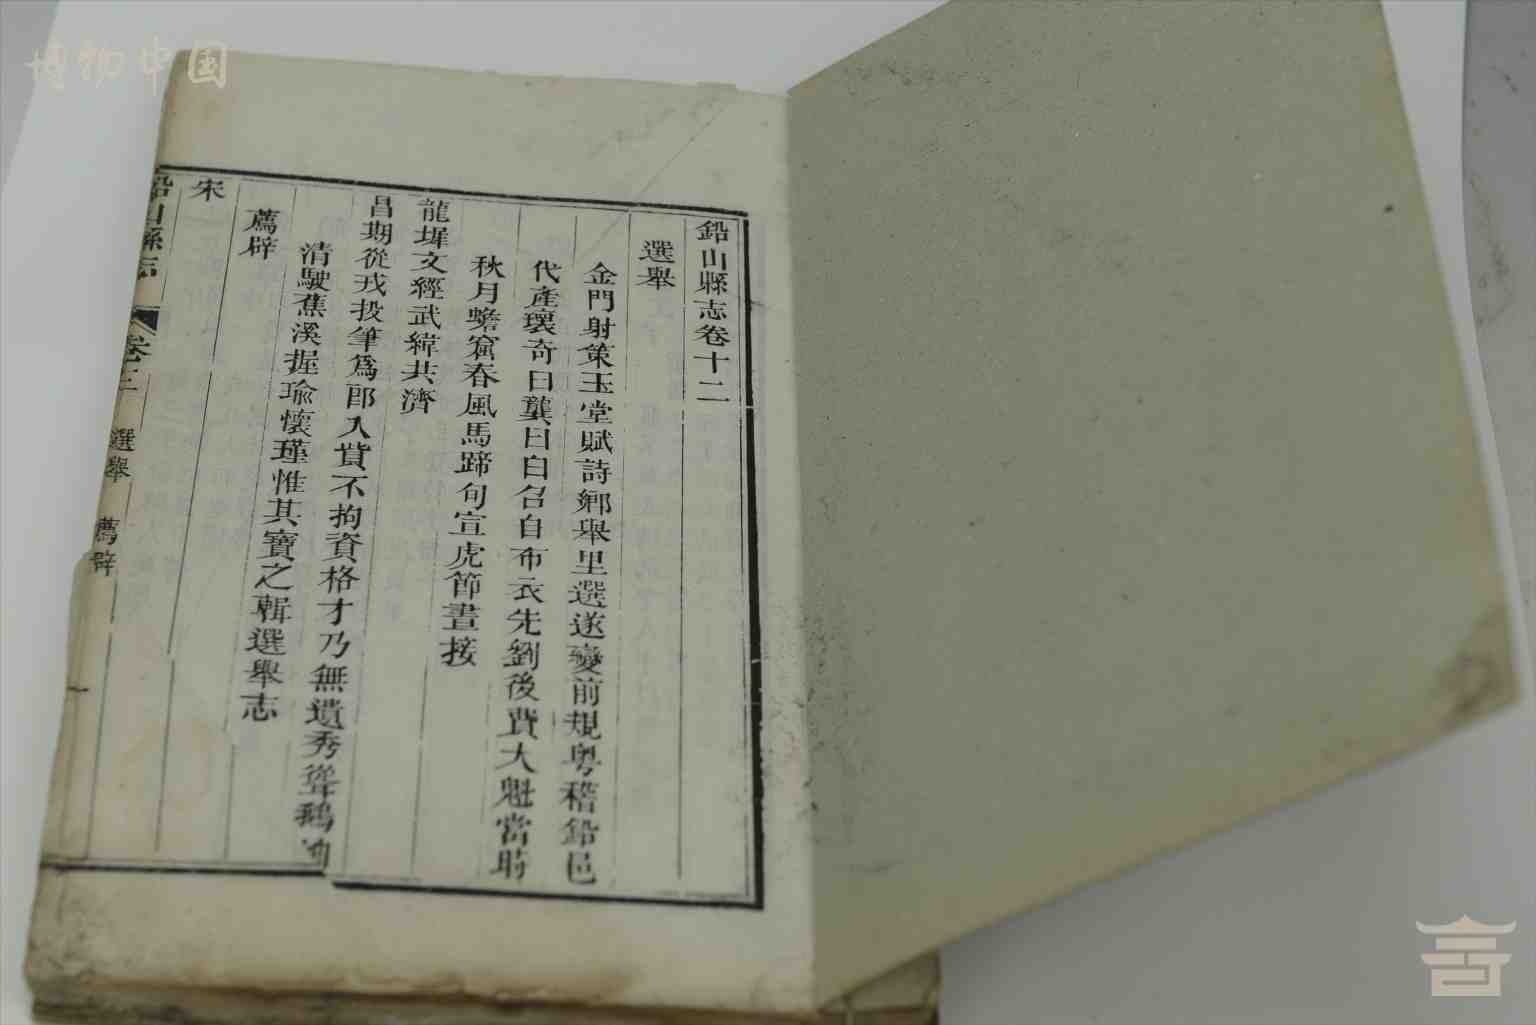 博物中国
鉛山縣志卷十二
選舉
金門射策玉堂賦詩鄕舉里選遂變前規粤稽鉛邑
代產瓌奇曰龔曰白召自布衣先劉後費大魁當時
秋月蟾窟春風馬蹄旬宣虎節晝接
龍墀文經武緯共濟
昌期從戎投筆爲郎入貲不拘資格才乃無遺秀聳鵝
清駛蕉溪握瑜懷瑾惟其寶之輯選舉志
薦辟
宋
鉛山縣志
卷十二
選舉
薦辟